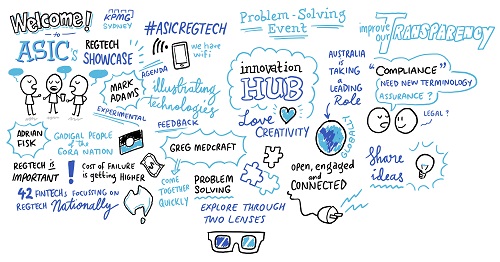 Welcome!
to
ASIC's
KPMG
SYDNEY
REGTECH
SHOWCASE
#ASICREGTECH
we have
wifi
MARK
ADAMS
AGENDA
illustrating
technologies
EXPERIMENTAL
FEEDBACK
ADRIAN
FISK
GADIGAL PEOPLE
of the
EORA NATION
REGTECH is
IMPORTANT
!
COST OF FAILURE
is getting HIGHER
42 FINTECHS FOCUSSING ON
REGTECH Nationally
GREG MEDCRAFT
COME
TOGETHER
QUICKLY
PROBLEM
SOLVING
EXPLORE THROUGH
TWO LENSES
Problem-Solving
Event
innovation
HUB
Love
CREATIVITY
AUSTRALIA
IS
TAKING
A
LEADING
Role
GLOBALLY
open, engaged
and
CONNECTED
improve
our
TRANSPARENCY
"COMPLIANCE"
NEED NEW TERMINOLOGY
ASSURANCE?
LEGAL?
Share
ideas